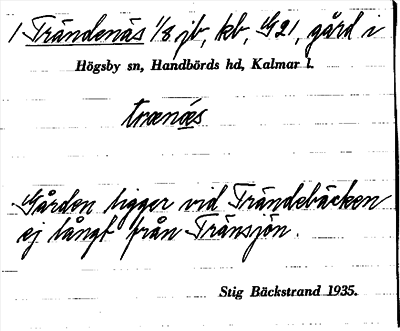 1 Trändenäs 1/8 jb, kb, G21, gård i
Högsby sn, Handbörds hd, Kalmar l.
trænä̱s
Gården ligger vid Trändebäcken
ej långt från Tränsjön.
Stig Bäckstrand 1935.